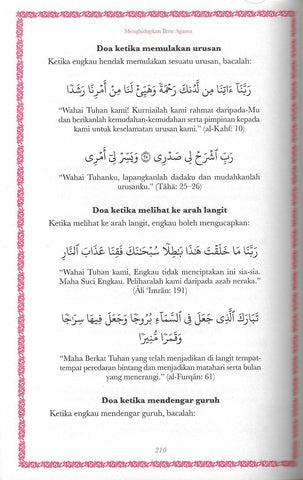 Menghidupkan Ilmu Agama
Doa ketika memulakan urusan
Ketika engkau hendak memulakan sesuatu urusan, bacalah:
رَبَّنَآ ءَاتِنَا مِن لَّدُنكَ رَحْمَةً وَهَيِّئْ لَنَا مِنْ أَمْرِنَا رَشَدًا
"Wahai Tuhan kami! Kurniailah kami rahmat daripada-Mu
dan berikanlah kemudahan-kemudahan serta pimpinan kepada
kami untuk keselamatan urusan kami." (al-Kahf: 10)
رَبِّ ٱشْرَحْ لِى صَدْرِى ۝٢٥ وَيَسِّرْ لِىٓ أَمْرِى
"Wahai Tuhanku, lapangkanlah dadaku dan mudahkanlah
urusanku." (Tāhā: 25–26)
Doa ketika melihat ke arah langit
Ketika engkau melihat ke arah langit, engkau boleh mengucapkan:
رَبَّنَا مَا خَلَقْتَ هَٰذَا بَٰطِلًا سُبْحَٰنَكَ فَقِنَا عَذَابَ ٱلنَّارِ
"Wahai Tuhan kami, Engkau tidak menciptakan ini sia-sia.
Maha Suci Engkau. Peliharalah kami daripada azab neraka."
(Āli 'Imrān: 191)
تَبَارَكَ ٱلَّذِى جَعَلَ فِى ٱلسَّمَآءِ بُرُوجًا وَجَعَلَ فِيهَا سِرَٰجًا
وَقَمَرًا مُّنِيرًا
"Maha Berkat Tuhan yang telah menjadikan di langit tempat-
tempat peredaran bintang dan menjadikan matahari serta bulan
yang menerangi." (al-Furqān: 61)
Doa ketika mendengar guruh
Ketika engkau mendengar guruh, bacalah:
210